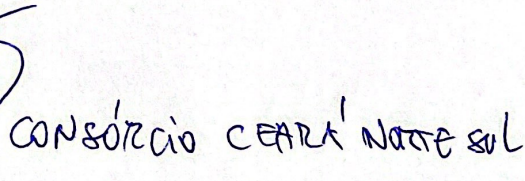 CONSÓRCIO CEARÁ NORTE SUL